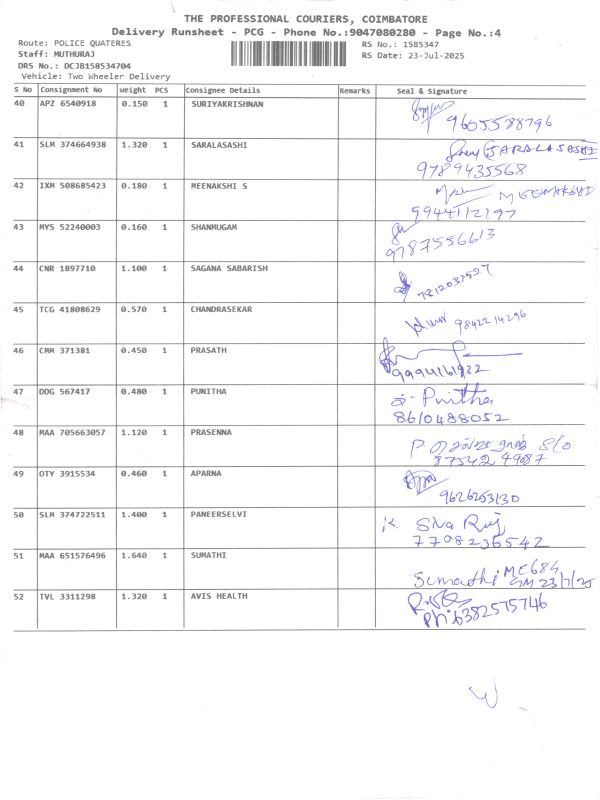 THE PROFESSIONAL COURIERS, COIMBATORE
Delivery Runsheet - PCG - Phone No.:9047080280 - Page No.:4
Route: POLICE QUATERES RS No.: 1585347
Staff: MUTHURAJ RS Date: 23-Jul-2025
DRS No.: DCJB158534704
Vehicle: Two Wheeler Delivery
S No Consignment No Weight PCS Consignee Details Remarks Seal & Signature
40 APZ 6540918 0.150 1 SURIYAKRISHNAN
9605588796
41 SLM 374664938 1.320 1 SARALASASHI SARALASASHI
9789435568
42 IXM 508685423 0.180 1 MEENAKSHI S MEENAKSHI
9944112197
43 MYS 52240003 0.160 1 SHANMUGAM
9787556613
44 CNR 1897710 1.100 1 SAGANA SABARISH
7812037527
45 TCG 41808629 0.570 1 CHANDRASEKAR
9842214296
46 CMM 371381 0.450 1 PRASATH
9994161922
47 DDG 567417 0.480 1 PUNITHA Punitha
8610488052
48 MAA 705663057 1.120 1 PRASENNA S/O
87542 49087
49 OTY 3915534 0.460 1 APARNA
9626253130
50 SLM 374722511 1.400 1 PANEERSELVI
7708236542
51 MAA 651576496 1.640 1 SUMATHI
Sumathi 23/7/25
52 TVL 3311298 1.320 1 AVIS HEALTH
Ph:6382575746